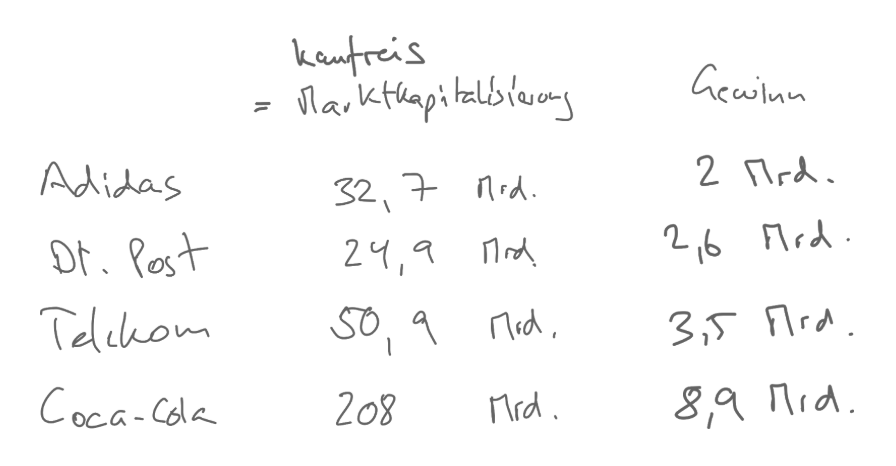 Kaufreis
= Marktkapitalisierung Gewinn
Adidas 32,7 Mrd. 2 Mrd.
Dt. Post 24,9 Mrd. 2,6 Mrd.
Telekom 50,9 Mrd. 3,5 Mrd.
Coca-Cola 208 Mrd. 8,9 Mrd.